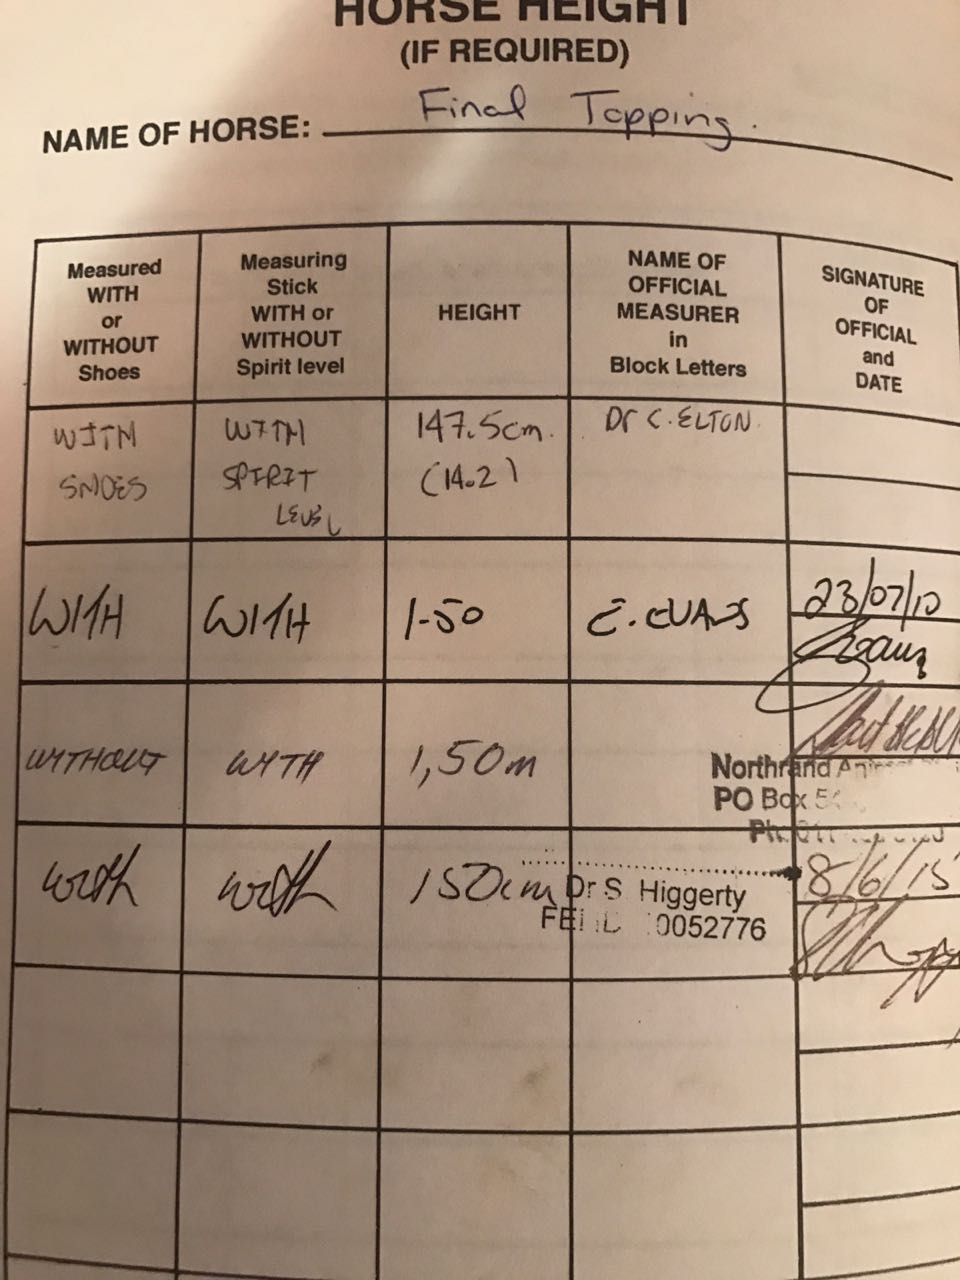 HORSE HEIGHT
(IF REQUIRED)
NAME OF HORSE: Final Topping.
Measured
WITH
or
WITHOUT
Shoes
Measuring
Stick
WITH or
WITHOUT
Spirit level
HEIGHT
NAME OF
OFFICIAL
MEASURER
in
Block Letters
SIGNATURE
OF
OFFICIAL
and
DATE
WITH
SHOES
WITH
SPIRIT
LEVEL
147.5cm.
(14.2)
Dr C. ELTON.
WITH
WITH
1-50
E. EVANS
23/07/10
Evans
WITHOUT
WITH
1,50m
Northrand
PO Box
Ph.
With
With
150cm
Dr S Higgerty
FEI 0052776
8/6/15